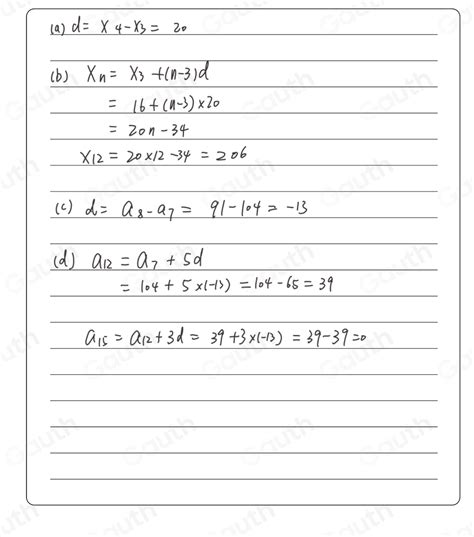 (a) d = x4 - x3 = 20
(b) Xn = X3 + (n-3)d
= 16 + (n-3) × 20
= 20n - 34
X12 = 20×12 - 34 = 206
(c) d = a8 - a7 = 91 - 104 = -13
(d) a12 = a7 + 5d
= 104 + 5 × (-13) = 104 - 65 = 39
a15 = a12 + 3d = 39 + 3×(-13) = 39 - 39 = 0
Gauth